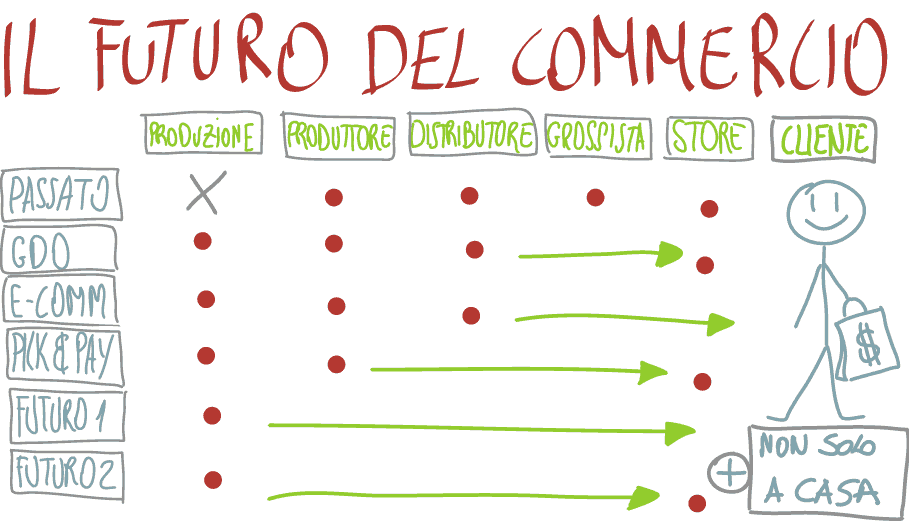 IL FUTURO DEL COMMERCIO
PRODUZIONE PRODUTTORE DISTRIBUTORE GROSSISTA STORE CLIENTE
PASSATO
GDO
E-COMM
PICK & PAY
$
FUTURO 1
NON SOLO
FUTURO 2
A CASA